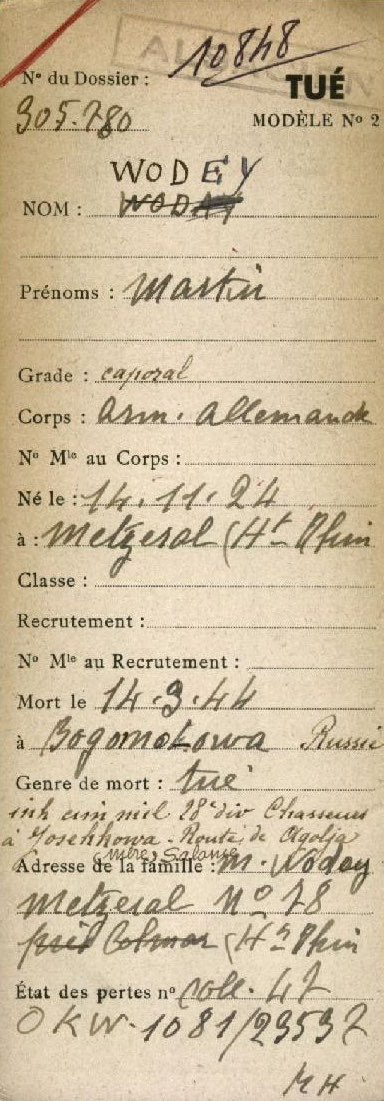 10848
N° du Dossier :
TUÉ
305.780
MODÈLE N° 2
WODEY
NOM : WODAY
Prénoms : Martin
Grade : caporal
Corps : Arm. Allemande
N° Mle au Corps :
Né le : 14.11.24
à : Metzeral (Ht Rhin
Classe :
Recrutement :
N° Mle au Recrutement :
Mort le 14.3.44
à Bogomolowa Russie
Genre de mort : tué
inh cim mil 28e div Chasseurs
à Josehkowa - Route de
(mère) Salomé
Adresse de la famille : M. Woday
Metzeral N° 78
près Colmar (Ht Rhin
État des pertes n° coll. 47
OKW. 1081/23537
MH